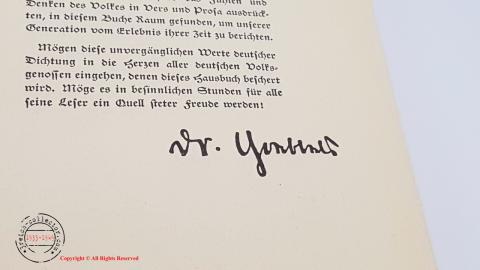 Denken des Volkes in Vers und Prosa ausdrück-
ten, in diesem Buche Raum gefunden, um unserer
Generation vom Erlebnis ihrer Zeit zu berichten.
Mögen diese unvergänglichen Werte deutscher
Dichtung in die Herzen aller deutschen Volks-
genossen eingehen, denen dieses Hausbuch beschert
wird. Möge es in besinnlichen Stunden für alle
seine Leser ein Quell steter Freude werden!
Dr. Goebbels
1933-1945
Copyright © All Rights Reserved